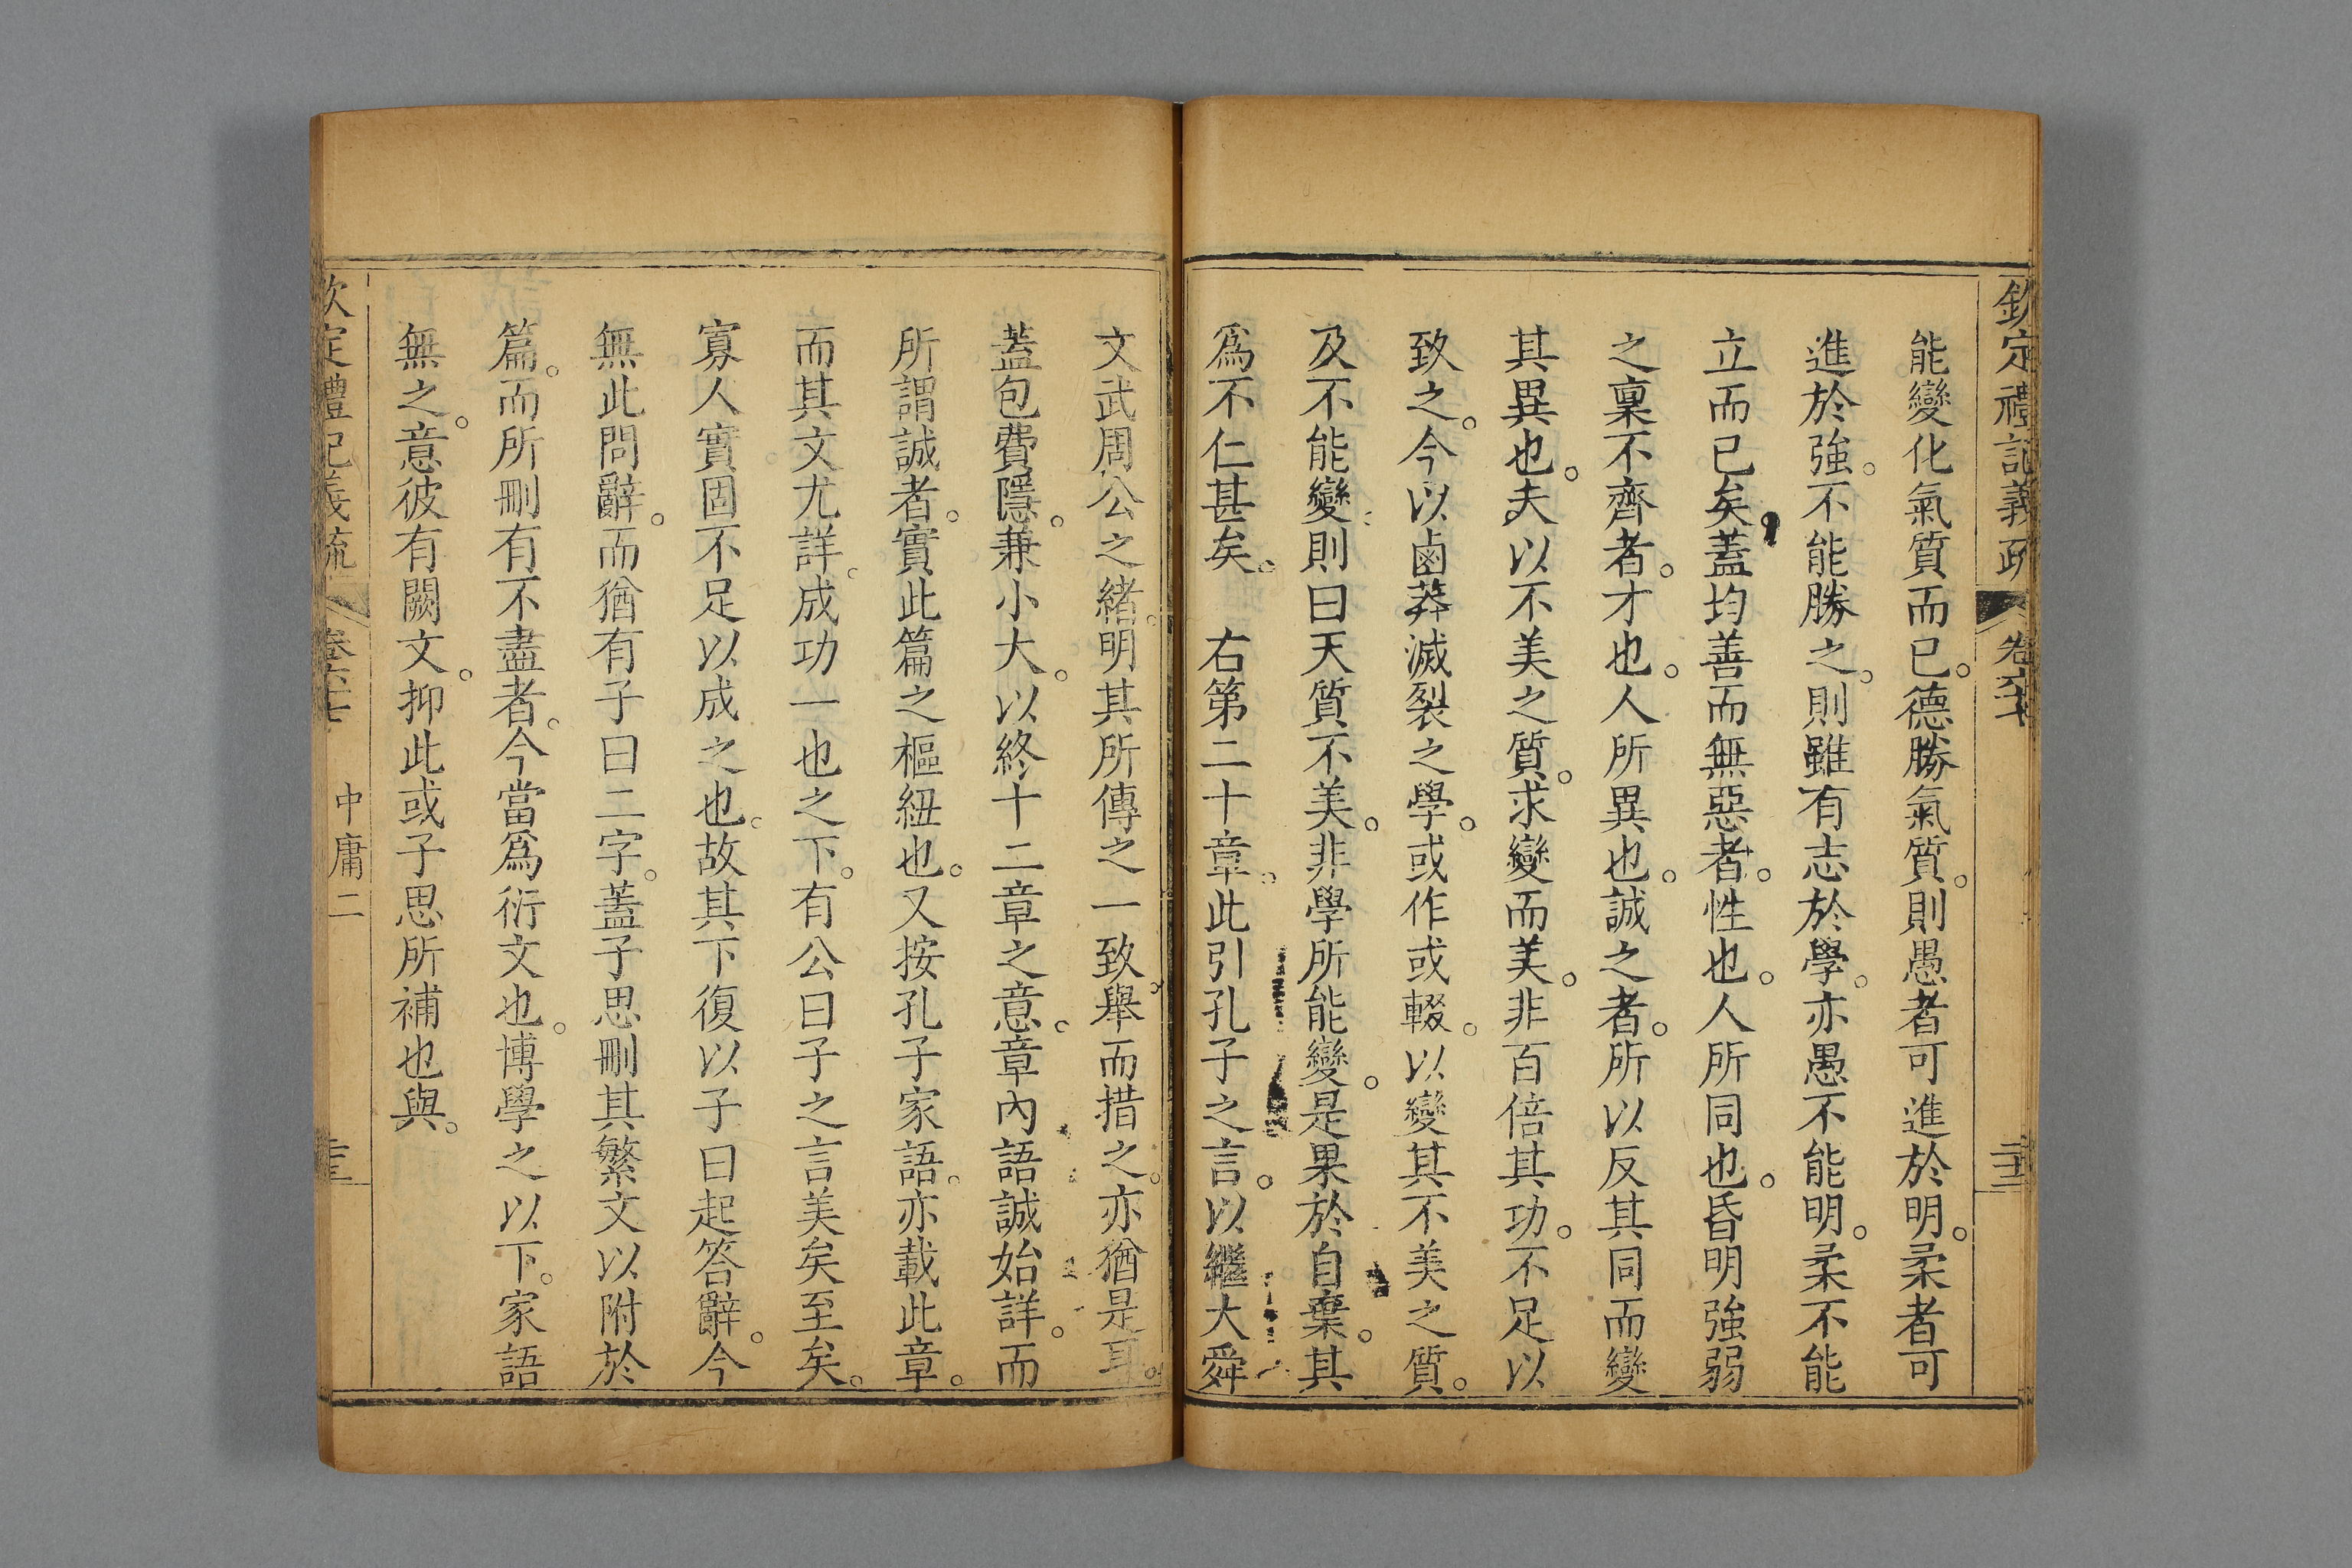 欽定禮記義疏 卷六十七 二十三
能變化氣質而已。德勝氣質。則愚者可進於明。柔者可
進於強。不能勝之。則雖有志於學。亦愚不能明。柔不能
立而已矣。蓋均善而無惡者。性也。人所同也。昏明強弱
之稟不齊者。才也。人所異也。誠之者。所以反其同而變
其異也。夫以不美之質。求變而美。非百倍其功。不足以
致之。今以鹵莽滅裂之學。或作或輟。以變其不美之質。
及不能變則曰天質不美。非學所能變。是果於自棄。其
為不仁甚矣。 右第二十章。此引孔子之言。以繼大舜
文武周公之緒。明其所傳之一致。舉而措之。亦猶是耳。
蓋包費隱。兼小大。以終十二章之意。章內語誠始詳。而
所謂誠者。實此篇之樞紐也。又按孔子家語。亦載此章。
而其文尤詳。成功一也之下。有公曰子之言美矣至矣。
寡人實固不足以成之也。故其下復以子曰起答辭。今
無此問辭。而猶有子曰二字。蓋子思刪其繁文以附於
篇。而所刪有不盡者。今當為衍文也。博學之以下。家語
無之。意彼有闕文。抑此或子思所補也與。
欽定禮記義疏 卷六十七 中庸二 二十三